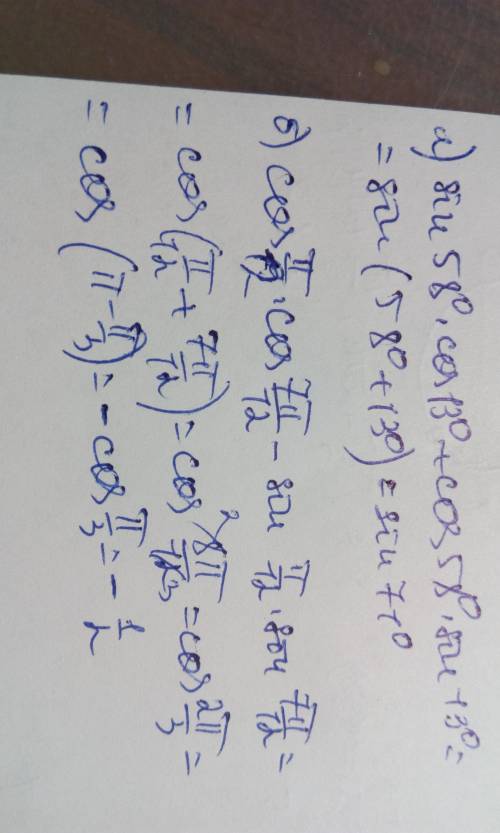 а) sin 58°· cos 13° + cos 58°· sin 13° =
= sin (58° + 13°) = sin 71°
б) cos π/12 · cos 7π/12 - sin π/12 · sin 7π/12 =
= cos (π/12 + 7π/12) = cos 8π/12 = cos 2π/3 =
= cos (π - π/3) = - cos π/3 = - 1/2